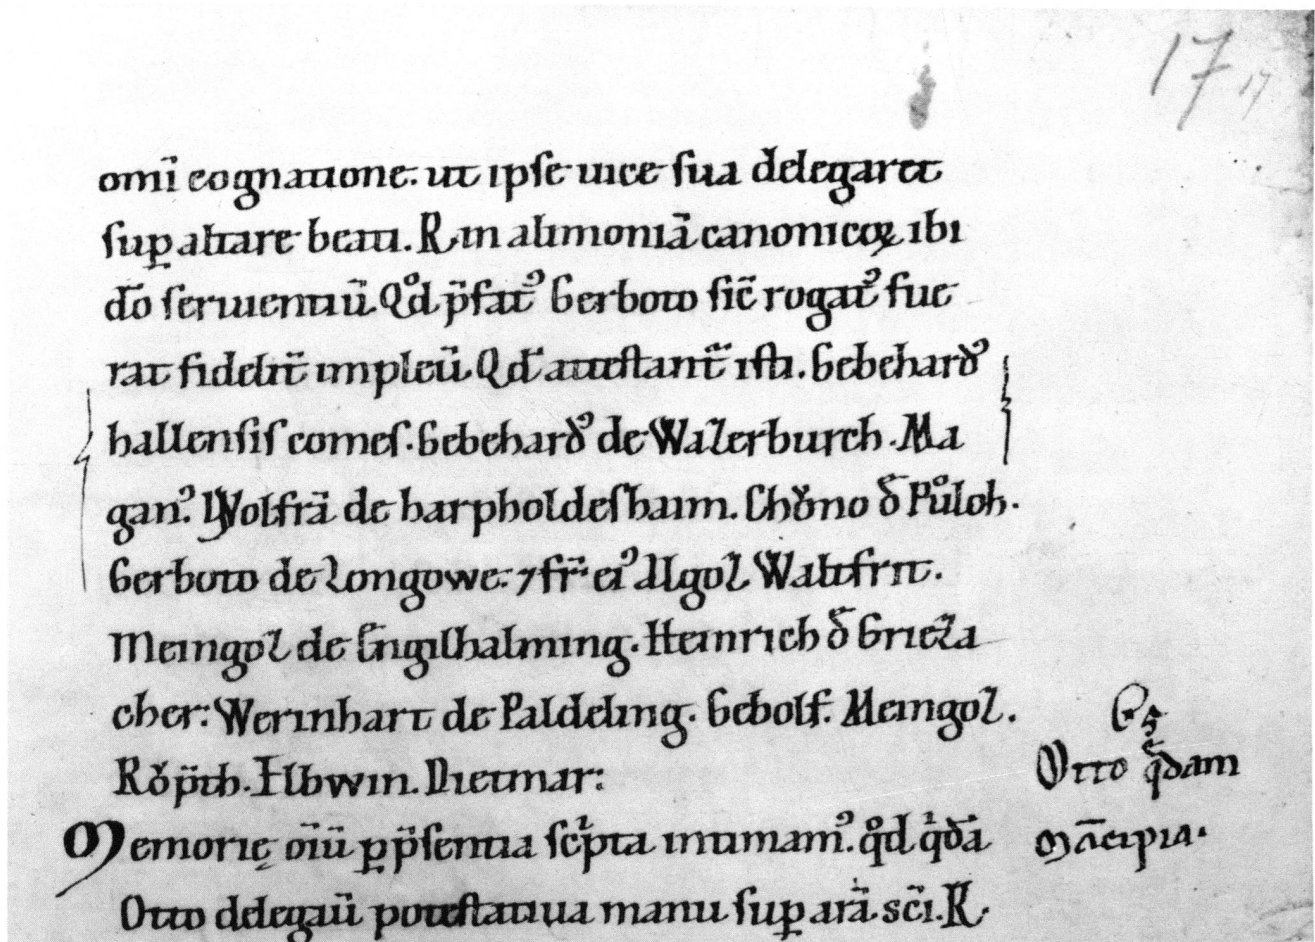 17 17
om̅i cognatione. ut ipse uice sua delegaret
sup̲ altare beati. R. in alimonia̅ canonicoꝝ ibi
do̅ seruientiu̅. Qd̊ p̅fatꝰ Gerboto sic̅ rogatꝰ fue
rat fidelit̅ impleu̅. Qd̵ attestant᷑ isti. Gebehardꝰ
hallensis comes. Gebehardꝰ de Walerburch. Ma
ganꝰ. Wolfra̅ de harpholdeshaim. Chůno đ Půloh.
Gerboto de Longowe. ⁊ fr̅ eiꝰ Algol Waltfrit.
Meingol de Engilhalming. Heinrich đ Griezla
cher: Werinhart de Paldeling. Gebolf. Meingol.
Růp̅th. Ilbwin. Dietmar:
Memorię oi̅u̅ ꝑ p̅sentia sc̅pta intimamꝰ. qd̊ qͥda̅
Otto qͥdam
ma̅cipia.
Otto delegau̅ potestatiua manu suꝑ ara̅ sc̅i. R.